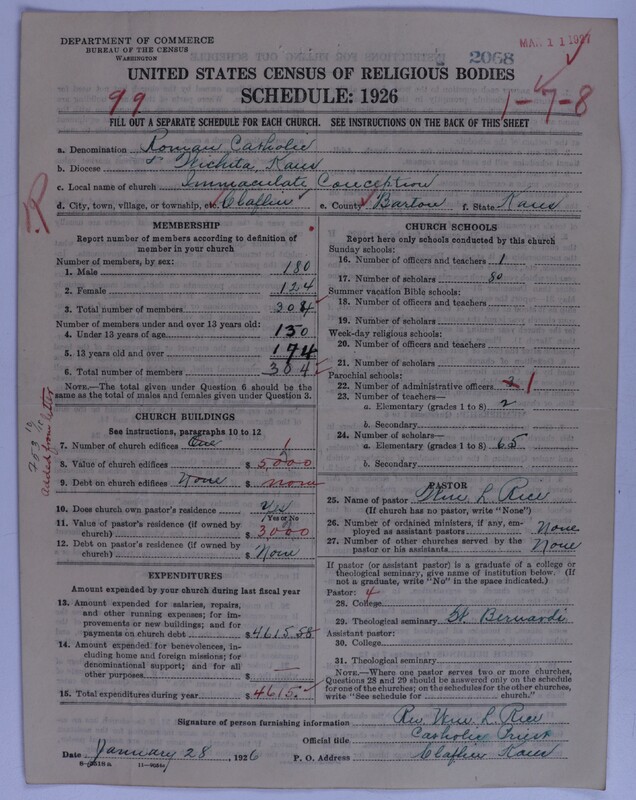 DEPARTMENT OF COMMERCE
BUREAU OF THE CENSUS
WASHINGTON
MAR 11 1927
2068
UNITED STATES CENSUS OF RELIGIOUS BODIES
SCHEDULE: 1926
99
1-7-8
FILL OUT A SEPARATE SCHEDULE FOR EACH CHURCH. SEE INSTRUCTIONS ON THE BACK OF THIS SHEET
a. Denomination Roman Catholic
b. Diocese Wichita, Kans
c. Local name of church Immaculate Conception
d. City, town, village, or township, etc. Claflin e. County Barton f. State Kans
R
MEMBERSHIP
Report number of members according to definition of
member in your church
Number of members, by sex:
1. Male 180
2. Female 124
3. Total number of members 304
Number of members under and over 13 years old:
4. Under 13 years of age 130
5. 13 years old and over 174
6. Total number of members 304
NOTE.—The total given under Question 6 should be
the same as the total of males and females given under Question 3.
added from letter
CHURCH BUILDINGS
See instructions, paragraphs 10 to 12
7. Number of church edifices One 1
8. Value of church edifices $ 5000
9. Debt on church edifices None $ none
10. Does church own pastor's residence? Yes
(Yes or No)
11. Value of pastor's residence (if owned by
church) $ 3000
12. Debt on pastor's residence (if owned by
church) $ None
EXPENDITURES
Amount expended by your church during last fiscal year
13. Amount expended for salaries, repairs,
and other running expenses; for im-
provements or new buildings; and for
payments on church debt $ 4615.58
14. Amount expended for benevolences, in-
cluding home and foreign missions; for
denominational support; and for all
other purposes $ —
15. Total expenditures during year $ 4615.
CHURCH SCHOOLS
Report here only schools conducted by this church
Sunday schools:
16. Number of officers and teachers 1
17. Number of scholars 80
Summer vacation Bible schools:
18. Number of officers and teachers
19. Number of scholars
Week-day religious schools:
20. Number of officers and teachers
21. Number of scholars
Parochial schools:
22. Number of administrative officers 2 1
23. Number of teachers—
a. Elementary (grades 1 to 8) 2
b. Secondary
24. Number of scholars—
a. Elementary (grades 1 to 8) 65
b. Secondary
PASTOR
25. Name of pastor Wm L. Rice
(If church has no pastor, write "None")
26. Number of ordained ministers, if any, em-
ployed as assistant pastors None
27. Number of other churches served by the
pastor or his assistants None
If pastor (or assistant pastor) is a graduate of a college or
theological seminary, give name of institution below. (If
not a graduate, write "No" in the space indicated.)
Pastor: 4
28. College
29. Theological seminary St. Bernards
Assistant pastor:
30. College
31. Theological seminary
NOTE.—Where one pastor serves two or more churches,
Questions 28 and 29 should be answered only on the schedule
for one of the churches; on the schedules for the other churches,
write "See schedule for church."
Signature of person furnishing information Rev. Wm. L. Rice
Official title Catholic Priest
Date January 28, 1926 P. O. Address Claflin Kans